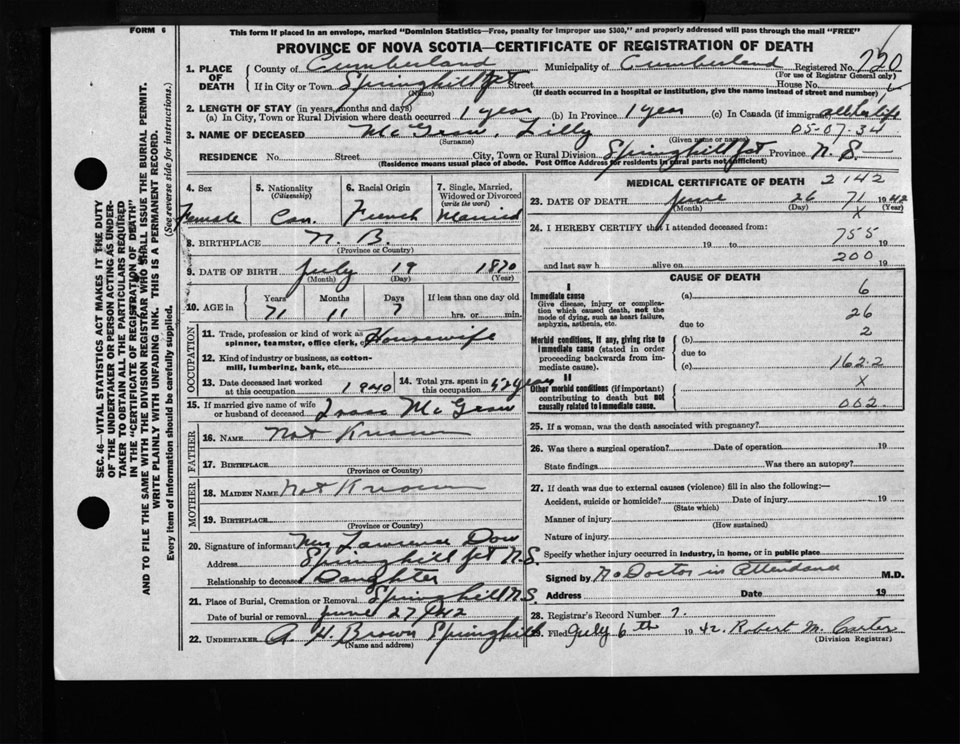 FORM 6
This form if placed in an envelope, marked "Dominion Statistics—Free, penalty for improper use $300," and properly addressed will pass through the mail "FREE"
PROVINCE OF NOVA SCOTIA—CERTIFICATE OF REGISTRATION OF DEATH
1. PLACE OF DEATH County of Cumberland Municipality of Cumberland Registered No. 720
(For use of Registrar General only)
If in City or Town Springhill Jct Street House No.
(Name) (If death occurred in a hospital or institution, give the name instead of street and number)
2. LENGTH OF STAY (in years, months and days)
(a) In City, Town or Rural Division where death occurred 1 year (b) In Province 1 year (c) In Canada (if immigrant) all her life
3. NAME OF DECEASED McGraw, Lilly 05-07-34
(Surname) (Given name or names)
RESIDENCE No. Street City, Town or Rural Division Springhill Jct Province N. S.
(Residence means usual place of abode. Post Office Address for residents in rural parts not sufficient)
4. Sex Female
5. Nationality (Citizenship) Can.
6. Racial Origin French
7. Single, Married, Widowed or Divorced (write the word) Married
8. BIRTHPLACE N. B.
(Province or Country)
9. DATE OF BIRTH July 19 1870
(Month) (Day) (Year)
10. AGE in Years Months Days If less than one day old
71 11 7 hrs. or min.
OCCUPATION
11. Trade, profession or kind of work as spinner, teamster, office clerk, etc. Housewife
12. Kind of industry or business, as cotton-mill, lumbering, bank, etc.
13. Date deceased last worked at this occupation 1940
14. Total yrs. spent in this occupation 52 years
15. If married give name of wife or husband of deceased Isaac McGraw
FATHER
16. NAME Not Known
17. BIRTHPLACE
(Province or Country)
MOTHER
18. MAIDEN NAME Not Known
19. BIRTHPLACE
(Province or Country)
20. Signature of informant Mrs Lawrence Dow
Address Springhill Jct N.S.
Relationship to deceased Daughter
21. Place of Burial, Cremation or Removal Springhill N.S.
Date of burial or removal June 27/42
22. UNDERTAKER A. H. Brown Springhill
(Name and address)
MEDICAL CERTIFICATE OF DEATH 2142
23. DATE OF DEATH June 26 71 1942
(Month) (Day) x (Year)
24. I HEREBY CERTIFY that I attended deceased from:
755
19 to 19
200
and last saw h alive on 19
CAUSE OF DEATH
I
Immediate cause (a) 6
Give disease, injury or complication which caused death, not the mode of dying, such as heart failure, asphyxia, asthenia, etc.
26
due to
2
Morbid conditions, if any, giving rise to immediate cause (stated in order proceeding backwards from immediate cause). (b)
due to
(c) 162-2
II
x
Other morbid conditions (if important) contributing to death but not causally related to immediate cause.
002
25. If a woman, was the death associated with pregnancy?
26. Was there a surgical operation? Date of operation 19
State findings Was there an autopsy?
27. If death was due to external causes (violence) fill in also the following:—
Accident, suicide or homicide? Date of injury 19
(State which)
Manner of injury
(How sustained)
Nature of injury
Specify whether injury occurred in industry, in home, or in public place
Signed by No Doctor in Attendance M.D.
Address Date 19
28. Registrar's Record Number 7.
29. Filed July 6th 1942. Robert M. Carter
(Division Registrar)
SEC. 46—VITAL STATISTICS ACT MAKES IT THE DUTY
OF THE UNDERTAKER OR PERSON ACTING AS UNDER-
TAKER TO OBTAIN ALL THE PARTICULARS REQUIRED
IN THE "CERTIFICATE OF REGISTRATION OF DEATH"
AND TO FILE THE SAME WITH THE DIVISION REGISTRAR WHO SHALL ISSUE THE BURIAL PERMIT.
WRITE PLAINLY WITH UNFADING INK. THIS IS A PERMANENT RECORD.
Every item of information should be carefully supplied. (See reverse side for instructions.)